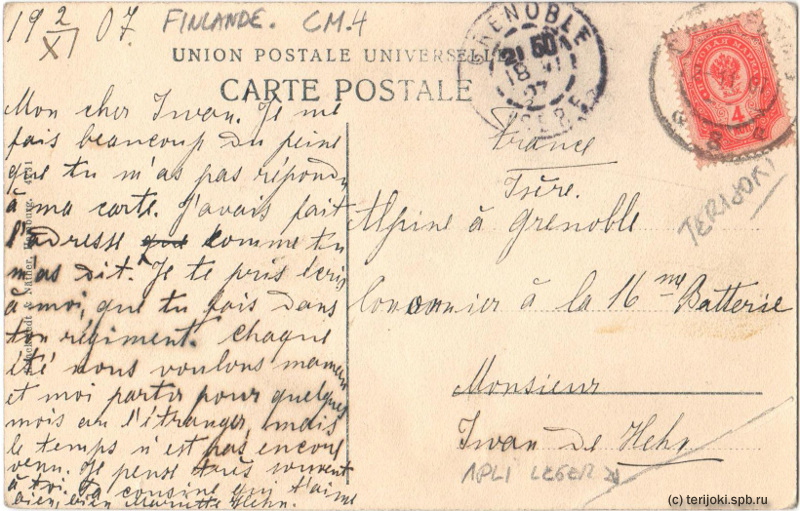 19 2/XI 07. FINLANDE. CM.4
UNION POSTALE UNIVERSELLE
CARTE POSTALE
GRENOBLE
ISERE
4
TERIJOKI
Mon cher Iwan. Je me
fais beaucoup du peine
que tu m'as pas répondu
à ma carte. J'avais fait
l'adresse comme tu
m'as dit. Je te pris écris
à moi, que tu fais dans
ton régiment. Chaque
été nous voulons maman
et moi partir pour quelques
mois an l'étranger, mais
le temps n'est pas encore
venu. Je pense très souvent
à toi. Ta cousine qui t'aime
bien, bien Mariette Hehn.
France
Isère.
Alpine à Grenoble
à la 16 me Batterie
Monsieur
Iwan de Hehn
APLI LEGER
(c) terijoki.spb.ru